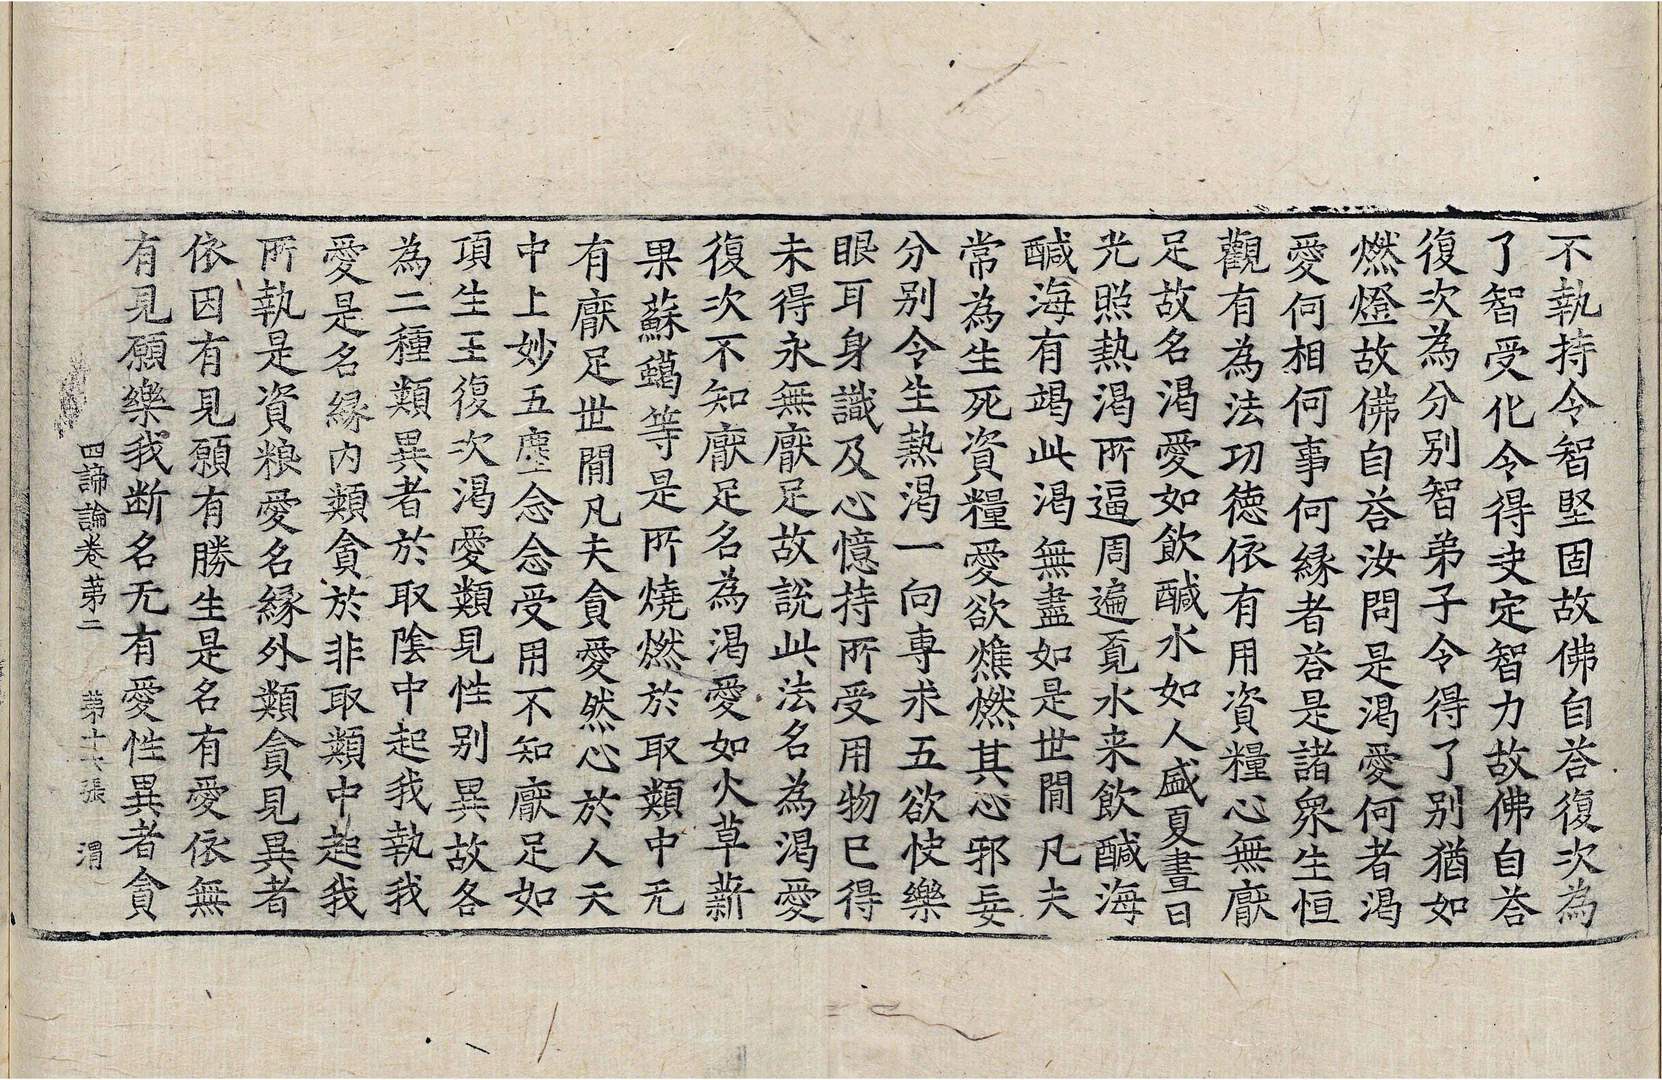 不執持令智堅固故佛自荅復次為
了智受化令得决定智力故佛自荅
復次為分別智弟子令得了別猶如
燃燈故佛自荅汝問是渴愛何者渴
愛何相何事何緣者荅是諸衆生恒
觀有為法功德依有用資糧心無厭
足故名渴愛如飲醎水如人盛夏晝日
光照熱渴所逼周遍覔水来飲醎海
醎海有竭此渴無盡如是世間凡夫
常為生死資糧愛欲燋燃其心邪妄
分別令生熱渴一向專求五欲快樂
眼耳身識及心憶持所受用物已得
未得永無厭足故說此法名為渴愛
復次不知厭足名為渴愛如火草薪
果蘇𧓍等是所燒燃於取類中无
有厭足世間凡夫貪愛然心於人天
中上妙五塵念念受用不知厭足如
頂生王復次渴愛類見性別異故各
為二種類異者於取陰中起我執我
愛是名緣內類貪於非取類中起我
所執是資粮愛名緣外類貪見異者
依因有見願有勝生是名有愛依無
有見願樂我断名无有愛性異者貪
四諦論卷苐二 苐十七張 渭